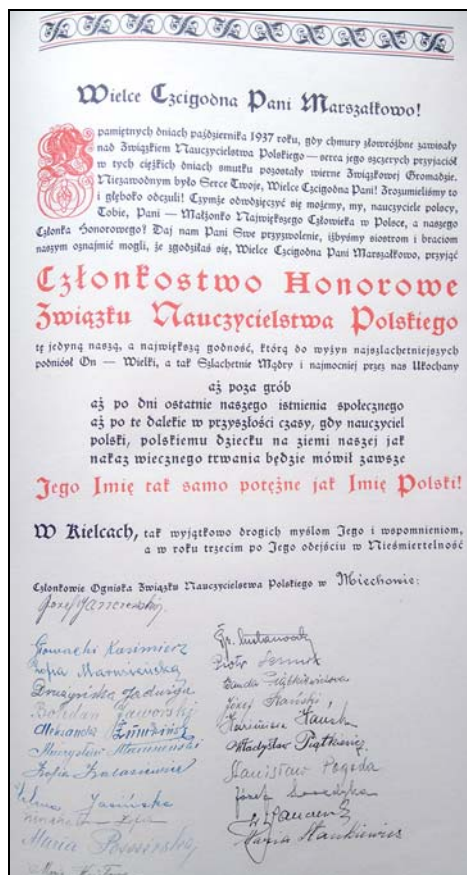 Wielce Czcigodna Pani Marszałkowo!
W pamiętnych dniach października 1937 roku, gdy chmury złowróżbne zawisały
nad Związkiem Nauczycielstwa Polskiego — serca jego szczerych przyjaciół
w tych ciężkich dniach smutku pozostały wierne Związkowej Gromadzie.
Niezawodnym było Serce Twoje, Wielce Czcigodna Pani! Zrozumieliśmy to
i głęboko odczuli! Czymże odwdzięczyć się możemy, my, nauczyciele polscy,
Tobie, Pani — Małżonko Największego Człowieka w Polsce, a naszego
Członka Honorowego? Daj nam Pani Swe przyzwolenie, iżbyśmy siostrom i braciom
naszym oznajmić mogli, że zgodziłaś się, Wielce Czcigodna Pani Marszałkowo, przyjąć
Członkostwo Honorowe
Związku Nauczycielstwa Polskiego
tę jedyną naszą, a największą godność, którą do wyżyn najszlachetniejszych
podniósł On — Wielki, a tak Szlachetnie Mądry i najmocniej przez nas Ukochany
aż poza grób
aż po dni ostatnie naszego istnienia społecznego
aż po te dalekie w przyszłości czasy, gdy nauczyciel
polski, polskiemu dziecku na ziemi naszej jak
nakaz wiecznego trwania będzie mówił zawsze
Jego Imię tak samo potężne jak Imię Polski!
W Kielcach, tak wyjątkowo drogich myślom Jego i wspomnieniom,
a w roku trzecim po Jego odejściu w Nieśmiertelność
Członkowie Ogniska Związku Nauczycielstwa Polskiego w Miechowie:
Józef
Głowacki Kazimierz
Zofia
Drużyńska Jadwiga
Bohdan Jaworski
Aleksandra
Mieczysław
Zofia
Jasińska
Maria
Piotr
Józef
Kazimiera
Władysław Piątkiewicz
Stanisław Pogoda
Józef
Maria Stankiewicz